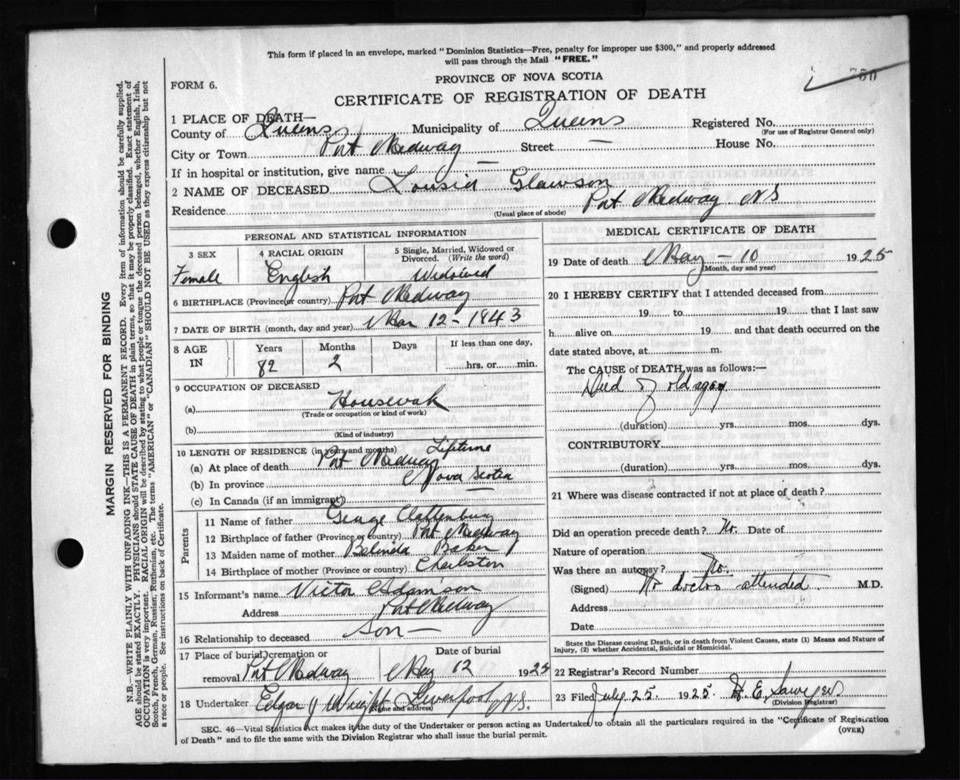 This form if placed in an envelope, marked "Dominion Statistics—Free, penalty for improper use $300," and properly addressed
will pass through the Mail "FREE."
PROVINCE OF NOVA SCOTIA
FORM 6.
CERTIFICATE OF REGISTRATION OF DEATH
1 PLACE OF DEATH—
County of Queens Municipality of Queens Registered No.
(For use of Registrar General only)
City or Town Port Medway Street — House No.
If in hospital or institution, give name —
2 NAME OF DECEASED Glawson
Residence Port Medway NS
(Usual place of abode)
PERSONAL AND STATISTICAL INFORMATION
3 SEX 4 RACIAL ORIGIN 5 Single, Married, Widowed or
Divorced. (Write the word)
Female English Widowed
6 BIRTHPLACE (Province or country) Port Medway
7 DATE OF BIRTH (month, day and year) Mar 12-1843
8 AGE IN Years Months Days If less than one day,
82 2 hrs. or min.
9 OCCUPATION OF DECEASED
(a) Housewak
(Trade or occupation or kind of work)
(b)
(Kind of industry)
10 LENGTH OF RESIDENCE (in years and months) Lifetime
(a) At place of death Port Medway
(b) In province Nova Scotia
(c) In Canada (if an immigrant)
Parents
11 Name of father George Clattenburg
12 Birthplace of father (Province or country) Port Medway
13 Maiden name of mother Belinda Baker
14 Birthplace of mother (Province or country) Charleston
15 Informant's name Victor Adamson
Address Port Medway
16 Relationship to deceased Son —
17 Place of burial, cremation or Date of burial
removal Port Medway May 12 1925
18 Undertaker Edgar J Wright Liverpool N.S.
(Name and address)
MEDICAL CERTIFICATE OF DEATH
19 Date of death May - 10 1925
(Month, day and year)
20 I HEREBY CERTIFY that I attended deceased from
19 to 19 that I last saw
h alive on 19 and that death occurred on the
date stated above, at m.
The CAUSE of DEATH was as follows:—
Died of old age
(duration) yrs. mos. dys.
CONTRIBUTORY
(duration) yrs. mos. dys.
21 Where was disease contracted if not at place of death?
Did an operation precede death? No. Date of
Nature of operation
Was there an autopsy? No.
(Signed) No doctor attended M.D.
Address
Date
State the Disease causing Death, or in death from Violent Causes, state (1) Means and Nature of
Injury, (2) whether Accidental, Suicidal or Homicidal.
22 Registrar's Record Number
23 Filed July 25 1925 H E Sawyer
(Division Registrar)
SEC. 46—Vital Statistics Act makes it the duty of the Undertaker or person acting as Undertaker to obtain all the particulars required in the "Certificate of Registration
of Death" and to file the same with the Division Registrar who shall issue the burial permit.
(OVER)
MARGIN RESERVED FOR BINDING
N.B.—WRITE PLAINLY WITH UNFADING INK—THIS IS A PERMANENT RECORD. Every item of information should be carefully supplied.
AGE should be stated EXACTLY. PHYSICIANS should STATE CAUSE OF DEATH in plain terms, so that it may be properly classified. Exact statement of
OCCUPATION is very important. RACIAL ORIGIN will be described by stating to what people or tongue the deceased person belonged, whether English, Irish,
Scotch, French, German, Russian, Ruthenian, etc. The terms "AMERICAN" or "CANADIAN" SHOULD NOT BE USED as they express citizenship but not
a race or people. See instructions on back of Certificate.